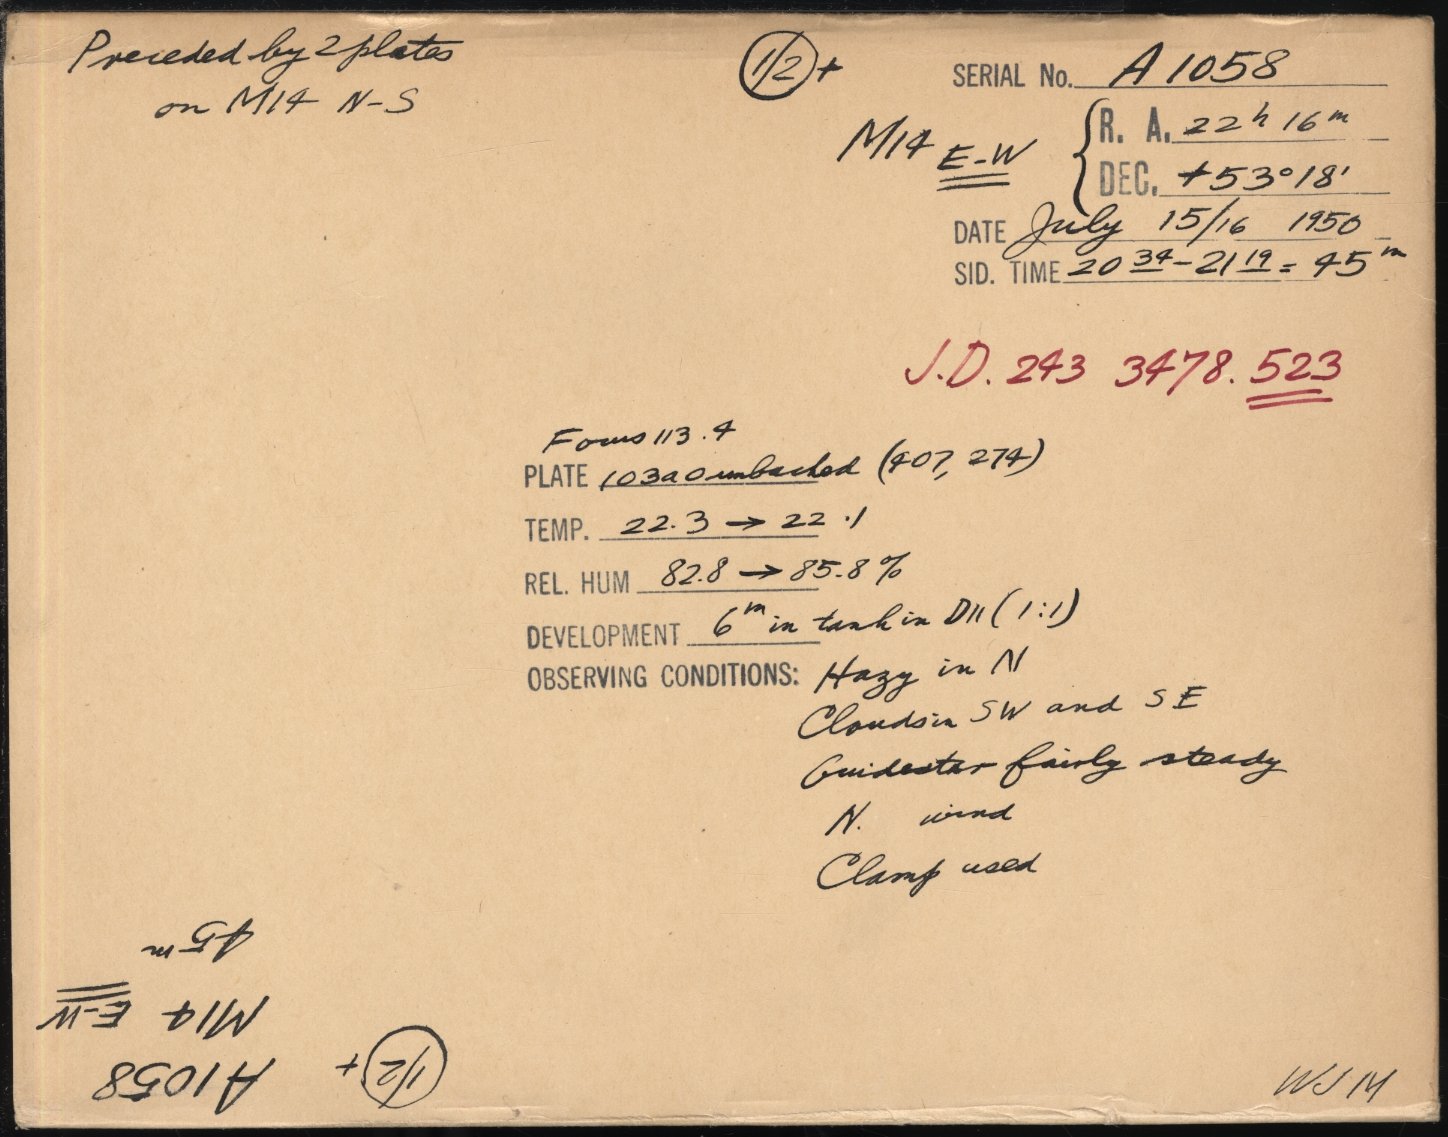 Preceded by 2 plates
on M14 N-S
1/2 +
SERIAL No. A 1058
M14 E-W
R. A. 22h 16m
DEC. +53° 18'
DATE July 15/16 1950
SID. TIME 20 34 - 21 19 = 45m
J.D. 243 3478.523
Focus 113.4
PLATE 103aO unbacked (407, 274)
TEMP. 22.3 → 22.1
REL. HUM 82.8 → 85.8%
DEVELOPMENT 6m in tank in D11 (1:1)
OBSERVING CONDITIONS: Hazy in N
Clouds in SW and SE
Guidestar fairly steady
N. wind
Clamp used
WJM
1/2 +
A1058
M14 E-W
45m